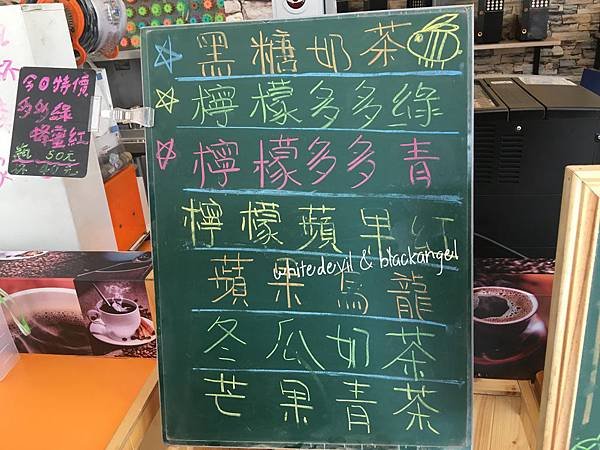 今日特價
多多綠
蜂蜜紅
瓶 50元
杯 40元
黑糖奶茶
檸檬多多綠
檸檬多多青
檸檬蘋果紅
whitedevil & blackangel
蘋果烏龍
冬瓜奶茶
芒果青茶